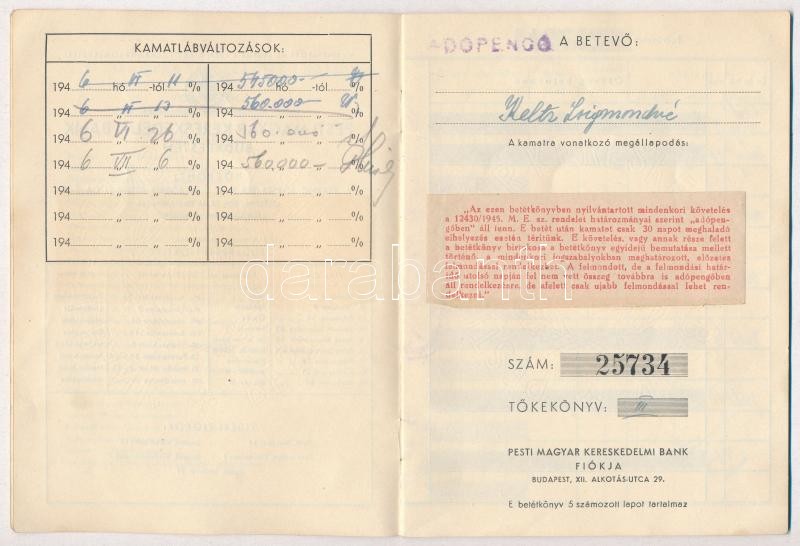 KAMATLÁBVÁLTOZÁSOK:
194 6 hó VI -tól 11 % 194 545000- hó -tól %
194 6 „ VI „ 17 % 194 560.000 „ „ %
194 6 „ VI „ 26 % 194 160.000 - „ „ %
194 6 „ VII „ 6 % 194 560.000- „ „ %
194 „ „ % 194 „ „ %
194 „ „ % 194 „ „ %
194 „ „ % 194 „ „ %
ADÓPENGŐ A BETEVŐ:
Zsigmondné
A kamatra vonatkozó megállapodás:
„Az ezen betétkönyvben nyilvántartott mindenkori követelés
a 12430/1945. M. E. sz. rendelet határozmányai szerint „adópen-
gőben” áll fenn. E betét után kamatot csak 30 napot meghaladó
elhelyezés esetén térítünk. E követelés, vagy annak része felett
a betétkönyv birtokosa a betétkönyv egyidejű bemutatása mellett
történő, a mindenkori jogszabályokban meghatározott, előzetes
felmondással rendelkezhet. A felmondott, de a felmondási határ-
idő utolsó napján fel nem vett összeg továbbra is adópengőben
áll rendelkezésre, de afelett csak ujabb felmondással lehet ren-
delkezni.”
SZÁM: 25734
TŐKEKÖNYV: III
PESTI MAGYAR KERESKEDELMI BANK
FIÓKJA
BUDAPEST, XII. ALKOTÁS-UTCA 29.
E betétkönyv 5 számozott lapot tartalmaz
darabanth